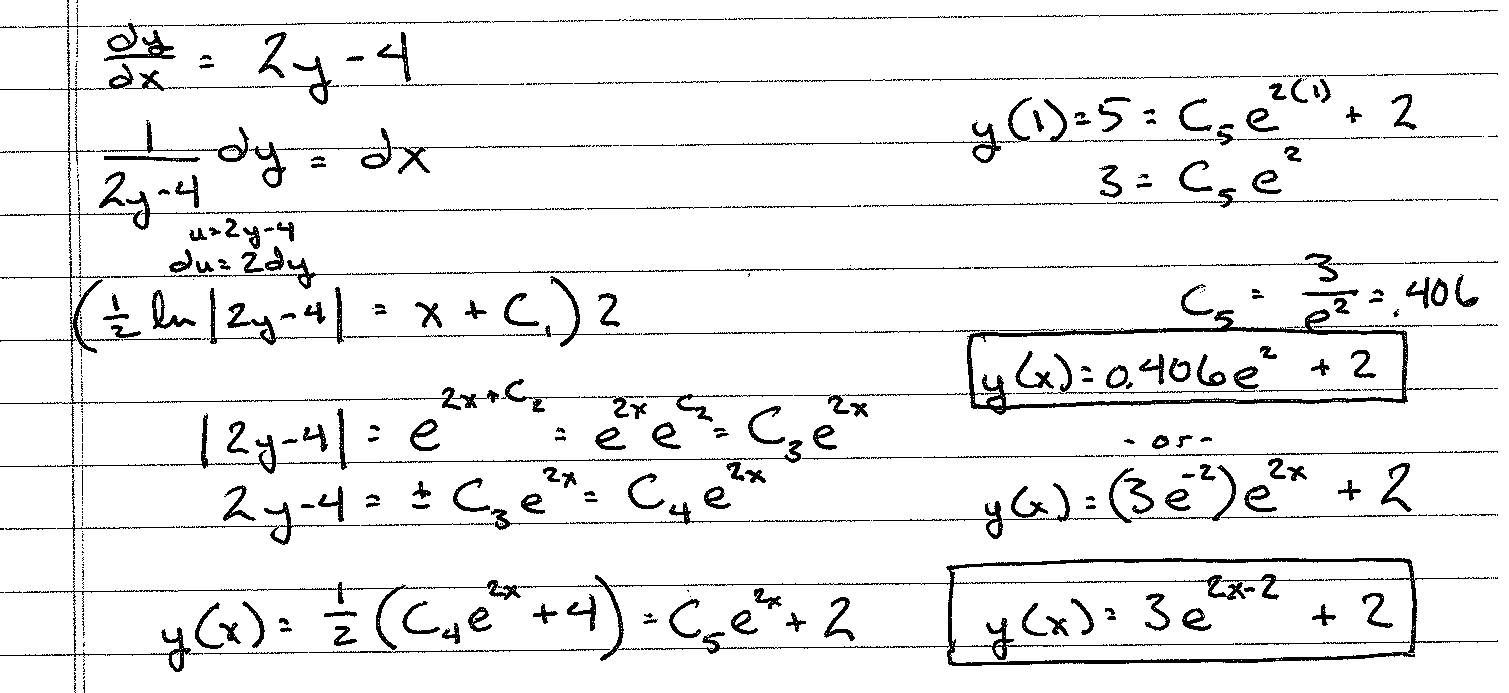 dy/dx = 2y-4
1/(2y-4) dy = dx
u=2y-4
du=2dy
(1/2 ln|2y-4| = x + C₁)2
|2y-4| = e^(2x+C₂) = e^(2x) e^(C₂) = C₃e^(2x)
2y-4 = ± C₃e^(2x) = C₄e^(2x)
y(x) = 1/2 (C₄e^(2x) + 4) = C₅e^(2x) + 2
y(1)=5 = C₅e^(2(1)) + 2
3 = C₅e^2
C₅ = 3/e^2 = .406
y(x)=0.406e^2 + 2
-or-
y(x)=(3e^(-2))e^(2x) + 2
y(x)=3e^(2x-2) + 2